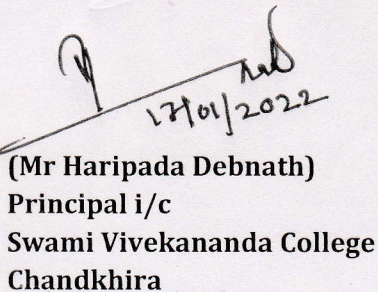 17/01/2022
(Mr Haripada Debnath)
Principal i/c
Swami Vivekananda College
Chandkhira